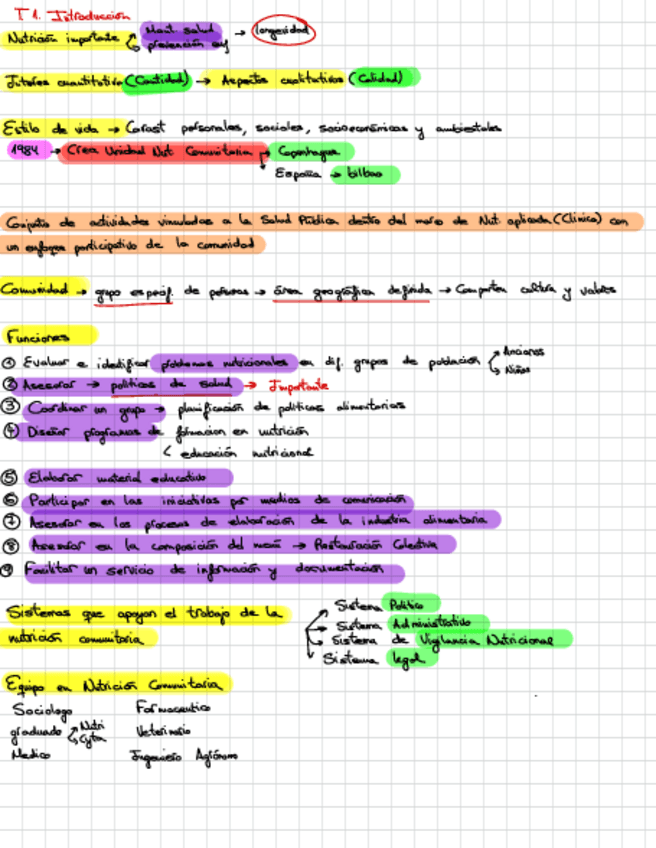 T 1. Introducción
Nutrición importante Mant. salud → longevidad
prevención enf
Interés cuantitativo (Cantidad) → Aspectos cualitativos (Calidad)
Estilo de vida → Caract personales, sociales, socioeconómicas y ambientales
1984 → Crea Unidad Nut Comunitaria → Copenhague
España → bilbao
Conjunto de actividades vinculadas a la Salud Pública dentro del marco de Nut. aplicada (Clínica) con
un enfoque participativo de la comunidad
Comunidad → grupo especif. de personas → área geográfica definida → Comparten cultura y valores
Funciones
① Evaluar e identificar problemas nutricionales en dif. grupos de población Ancianos
Niños
② Asesorar → políticas de salud → Importante
③ Coordinar un grupo → planificación de políticas alimentarias
④ Diseñar programas de formación en nutrición
educación nutricional
⑤ Elaborar material educativo
⑥ Participar en las iniciativas por medios de comunicación
⑦ Asesorar en los procesos de elaboración de la industria alimentaria
⑧ Asesorar en la composición del menú → Restauración Colectiva
⑨ Facilitar un servicio de información y documentación
Sistemas que apoyan el trabajo de la
nutrición comunitaria
Sistema Político
Sistema Administrativo
Sistema de Vigilancia Nutricional
Sistema legal
Equipo en Nutrición Comunitaria
Sociologo Farmaceutico
graduado Nutri Cyta Veterinario
Medico Ingeniero Agrónomo